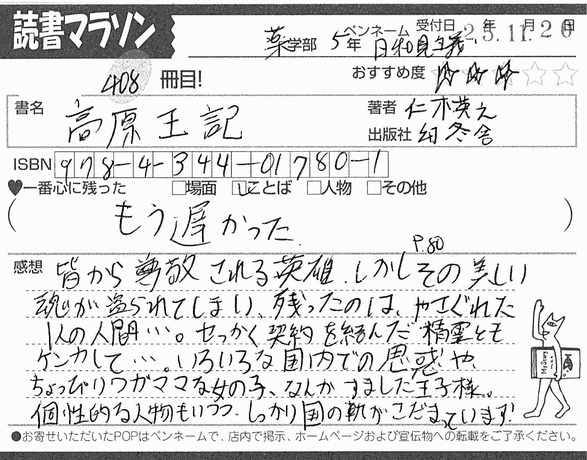 読書マラソン
薬学部 5年 ペンネーム 日和見主義 受付日 25.11.20
年 月 日
408 冊目!
おすすめ度 ☆☆☆☆☆
書名 高原王記
著者 仁木英之
出版社 幻冬舎
ISBN 978-4-344-01780-1
♥一番心に残った □場面 ☑ことば □人物 □その他
もう遅かった
P.80
感想 皆から尊敬される英雄。しかしその美しい
魂が盗られてしまい、残ったのは、やさぐれた
1人の人間…。せっかく契約を結んだ精霊とも
ケンカして…。いろいろな国内での思惑や、
ちょっぴりワガママな女の子、なんかすました王子様。
個性的な人物もいつつ、しっかり国の軌がこだまっています!
●お寄せいただいたPOPはペンネームで、店内で掲示、ホームページおよび宣伝物への転載をご了承ください。